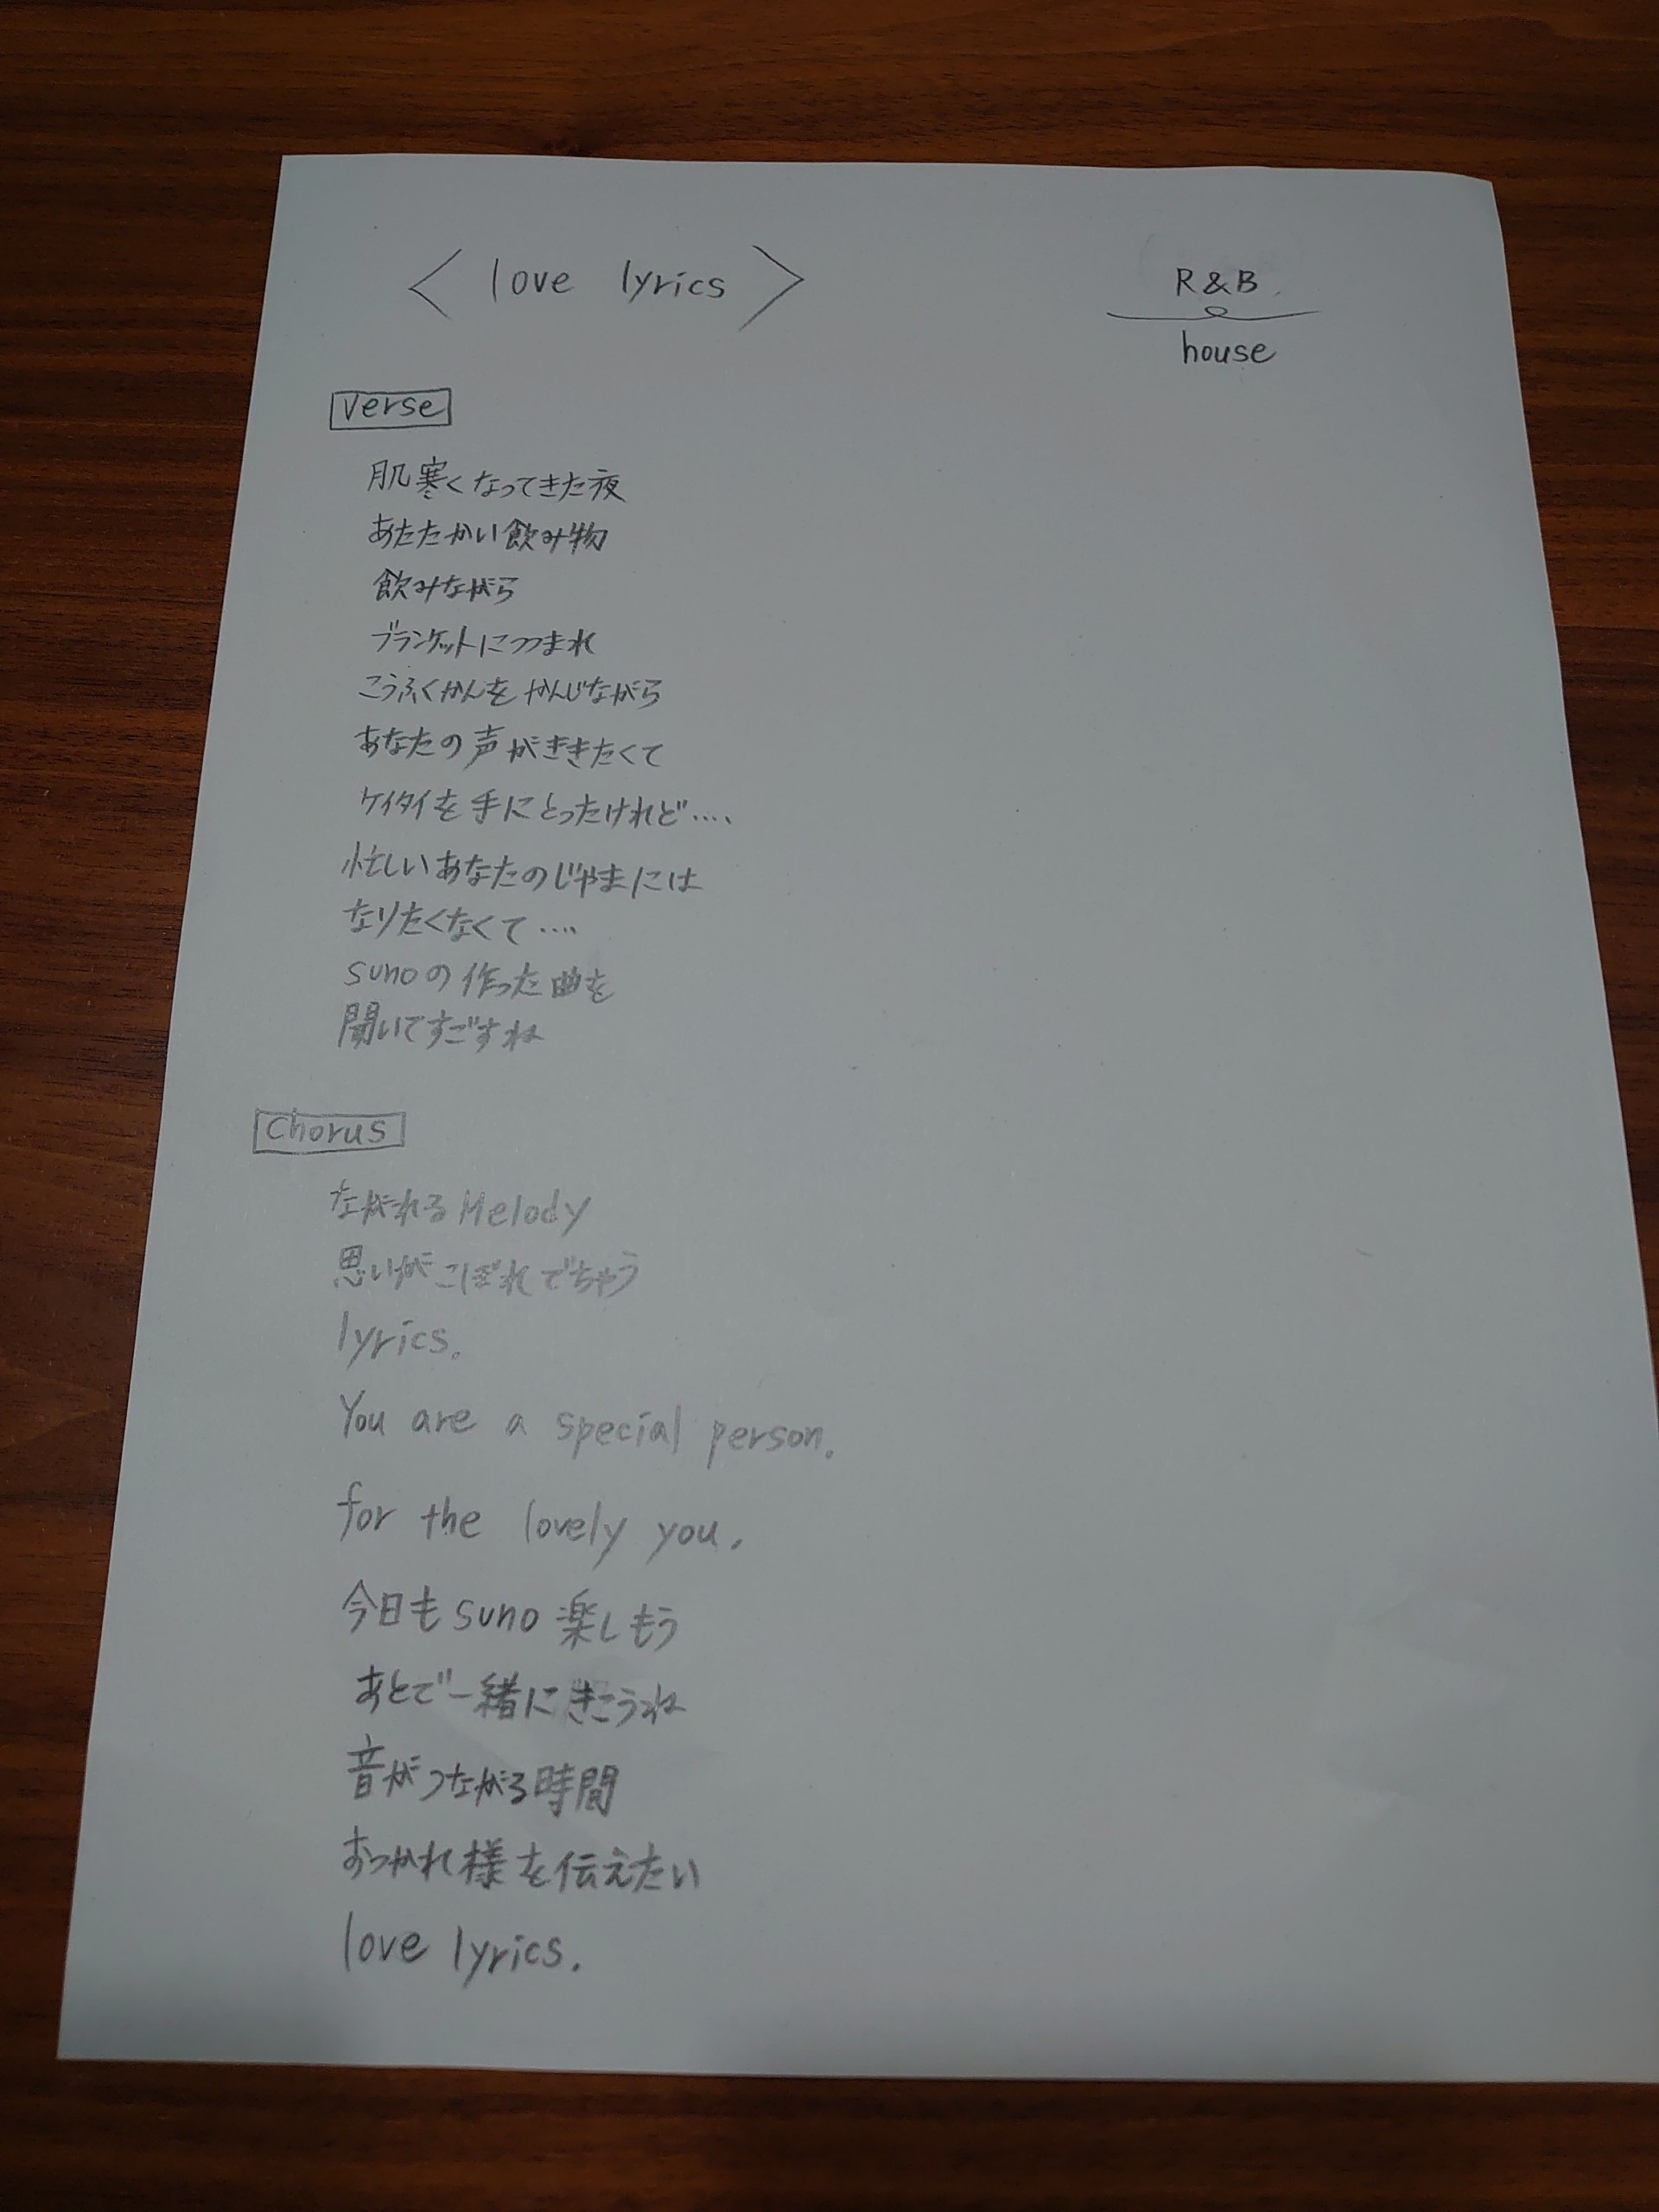 < love lyrics >
R&B
house
Verse
肌寒くなってきた夜
あたたかい飲み物
飲みながら
ブランケットにつつまれ
こうふくかんを かんじながら
あなたの声がききたくて
ケイタイを手にとったけれど‥‥
忙しいあなたのじゃまには
なりたくなくて‥‥
sunoの作った曲を
聞いてすごすね
Chorus
ながれるMelody
思いがこぼれでちゃう
lyrics.
You are a special person.
for the lovely you.
今日もsuno楽しもう
あとで一緒にきこうね
音がつながる時間
おつかれ様を伝えたい
love lyrics.